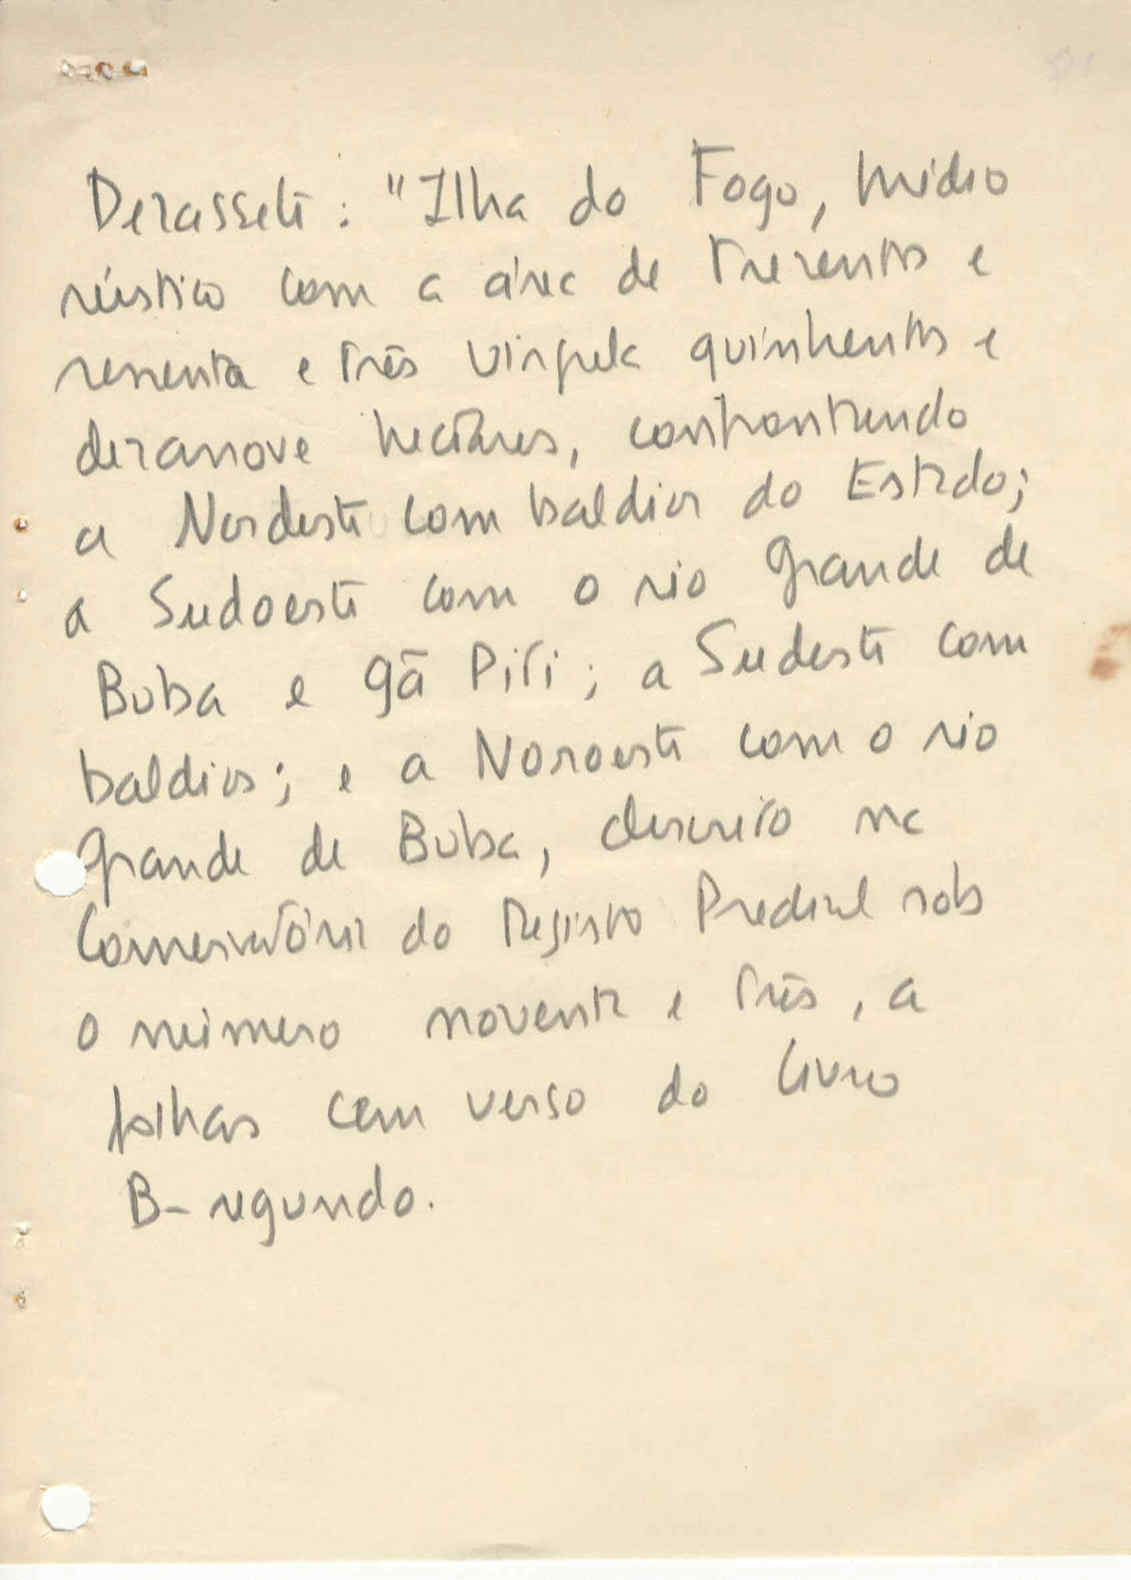 Dezassete: "Ilha do Fogo, prédio
rústico com a área de trezentos e
sessenta e três vírgula quinhentos e
dezanove hectares, confrontando
a Nordeste com baldios do Estado;
a Sudoeste com o rio grande de
Buba e gã Piri; a Sudeste com
baldios; e a Noroeste com o rio
grande de Buba, descrito na
Conservatória do Registo Predial sob
o número noventa e três, a
folhas cem verso do livro
B- segundo.